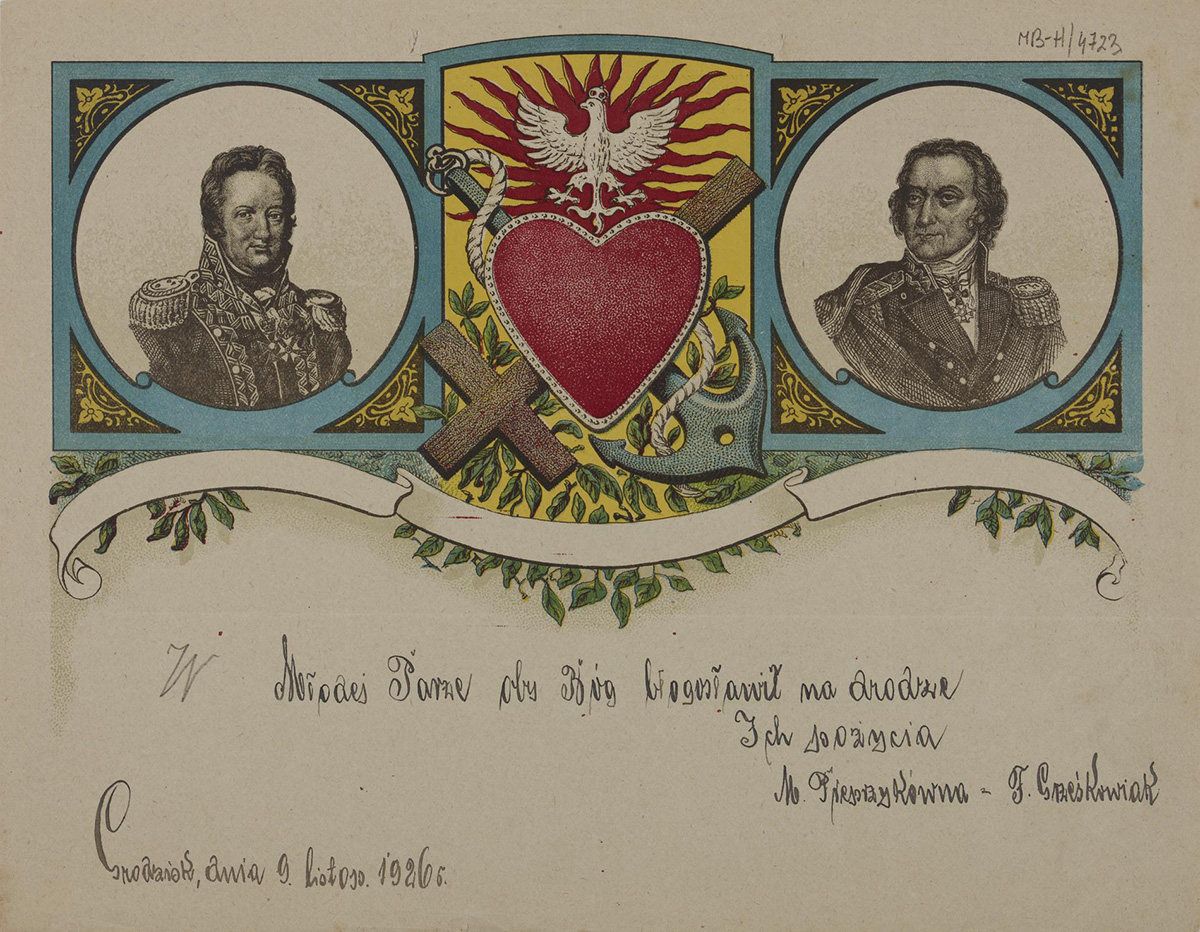 MB-H/4723
W
Młodej Parze oby Bóg błogosławił na drodze
Ich pożycia
M. Pieprzykówna - F. Grześkowiak
Grodzisk, dnia 9. listop. 1926 r.